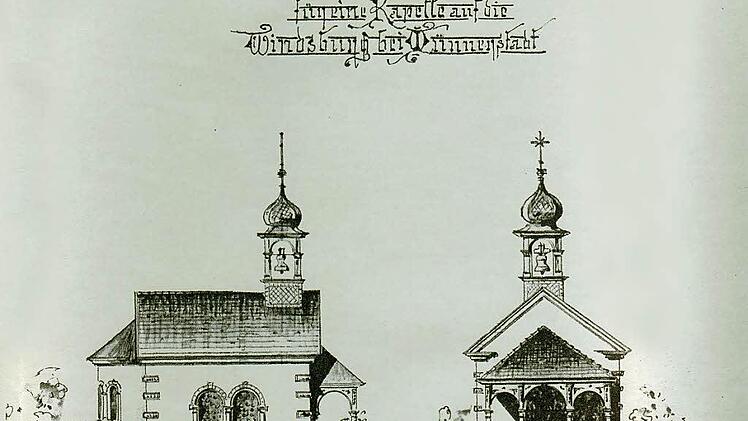 für eine Kapelle auf die
Windsburg bei Münnerstadt